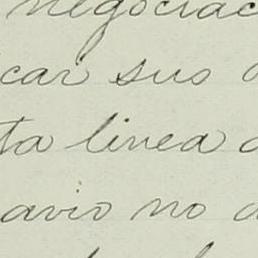 negociac
car sus
ta linea d
avio no d